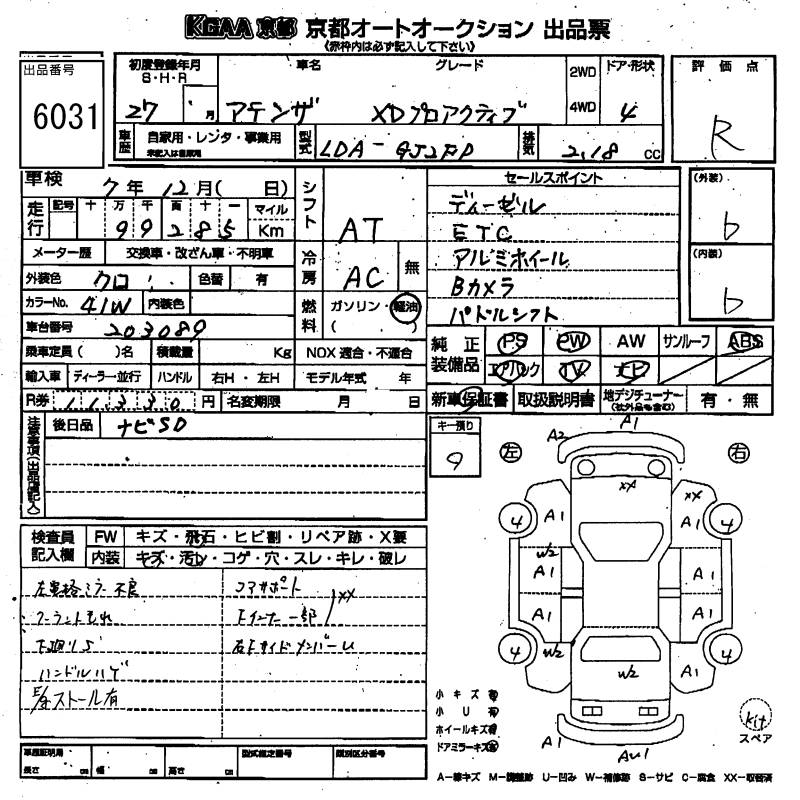 KCAA 京都 京都オートオークション 出品票
《赤枠内は必ず記入して下さい》
出品番号
6031
初度登録年月
S・H・R
27 月
車名
アテンザ
グレード
XDプロアクティブ
2WD
4WD
ドア・形状
4
評価点
R
車歴
自家用・レンタ・事業用
未記入は自家用
型式
LDA-GJ2FP
排気
2.18 cc
車検
7年 12月( 日)
走行
記号 十 万 千 百 十 一 マイル
9 9 2 8 5 Km
メーター歴 交換車・改ざん車・不明車
外装色 クロ 色替 有
カラーNo. 41W 内装色
車台番号 203089
乗車定員( )名 積載量 Kg
輸入車 ディーラー・並行 ハンドル 右H・左H
R券 11,330円 名変期限 月 日
シフト AT
冷房 AC 無
燃料 ガソリン・軽油
( )
NOX適合・不適合
モデル年式 年
セールスポイント
ディーゼル
ETC
アルミホイール
Bカメラ
パドルシフト
(外装)
b
(内装)
b
純正装備品
PS PW AW サンルーフ ABS
エアバック TV ナビ
新車保証書 取扱説明書 地デジチューナー 有・無
(社外品も含む)
注意事項(出品店記入)
後日品 ナビSD
キー預り
9
検査員記入欄
FW キズ・飛石・ヒビ割・リペア跡・X要
内装 キズ・汚レ・コゲ・穴・スレ・キレ・破レ
左電格ミラー不良
クーラントもれ
下廻りS
ハンドルハゲ
E/gストール有
コアサポート
Fインナー一部
XX
右Fサイドメンバーu
左 右
A2 A1
XX XX
4 A1 A1 4
W2
A1 A1
A1 A1
4 W2 W2 A1 4
A1 AU1
小キズ有
小U有
ホイールキズ有
ドアミラーキズ有
kit
スペア
車庫証明用
長さ cm 幅 cm 高さ cm
型式指定番号
類別区分番号
A-線キズ M-調整跡 U-凹み W-補修跡 S-サビ C-腐食 XX-取替済